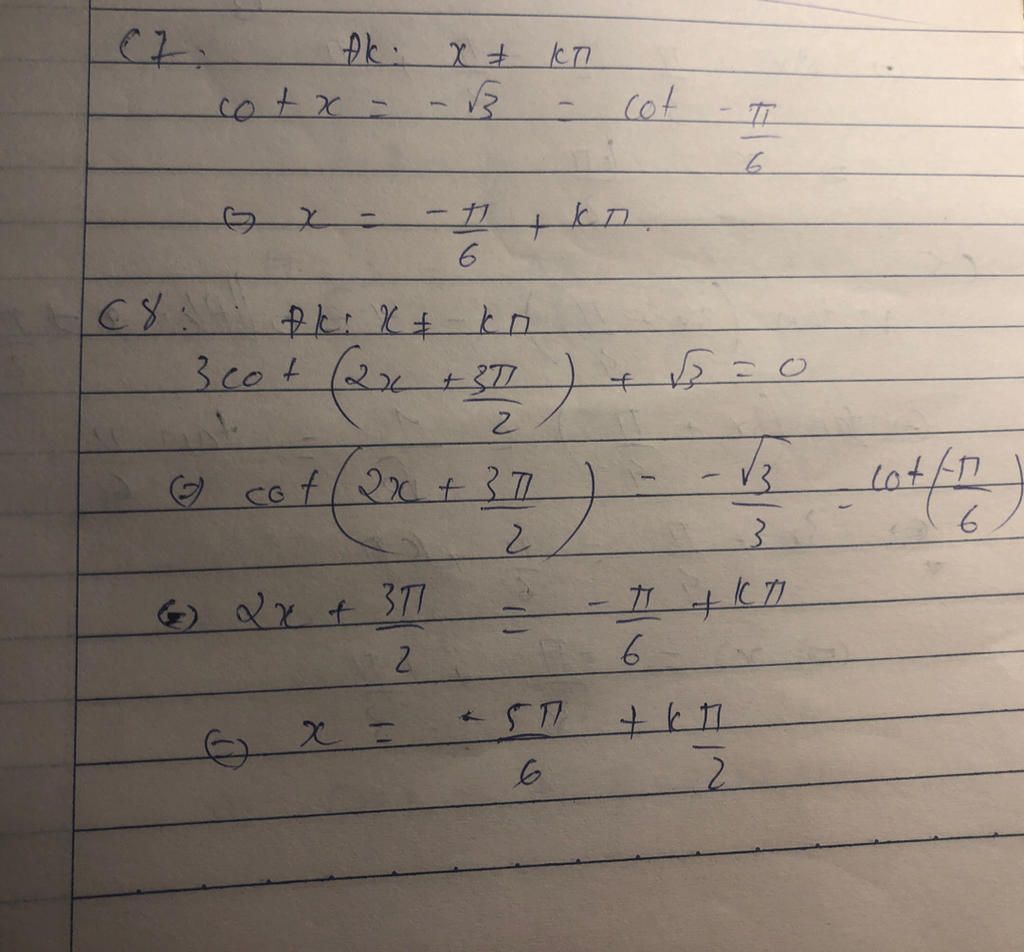 C7: Đk: x ≠ kπ
cot x = -√3 = cot -π/6
⇔ x = -π/6 + kπ.
C8: Đk: x ≠ kπ
3cot (2x + 3π/2) + √3 = 0
⇔ cot (2x + 3π/2) = -√3/3 = cot (-π/6)
⇔ 2x + 3π/2 = -π/6 + kπ
⇔ x = -5π/6 + kπ/2